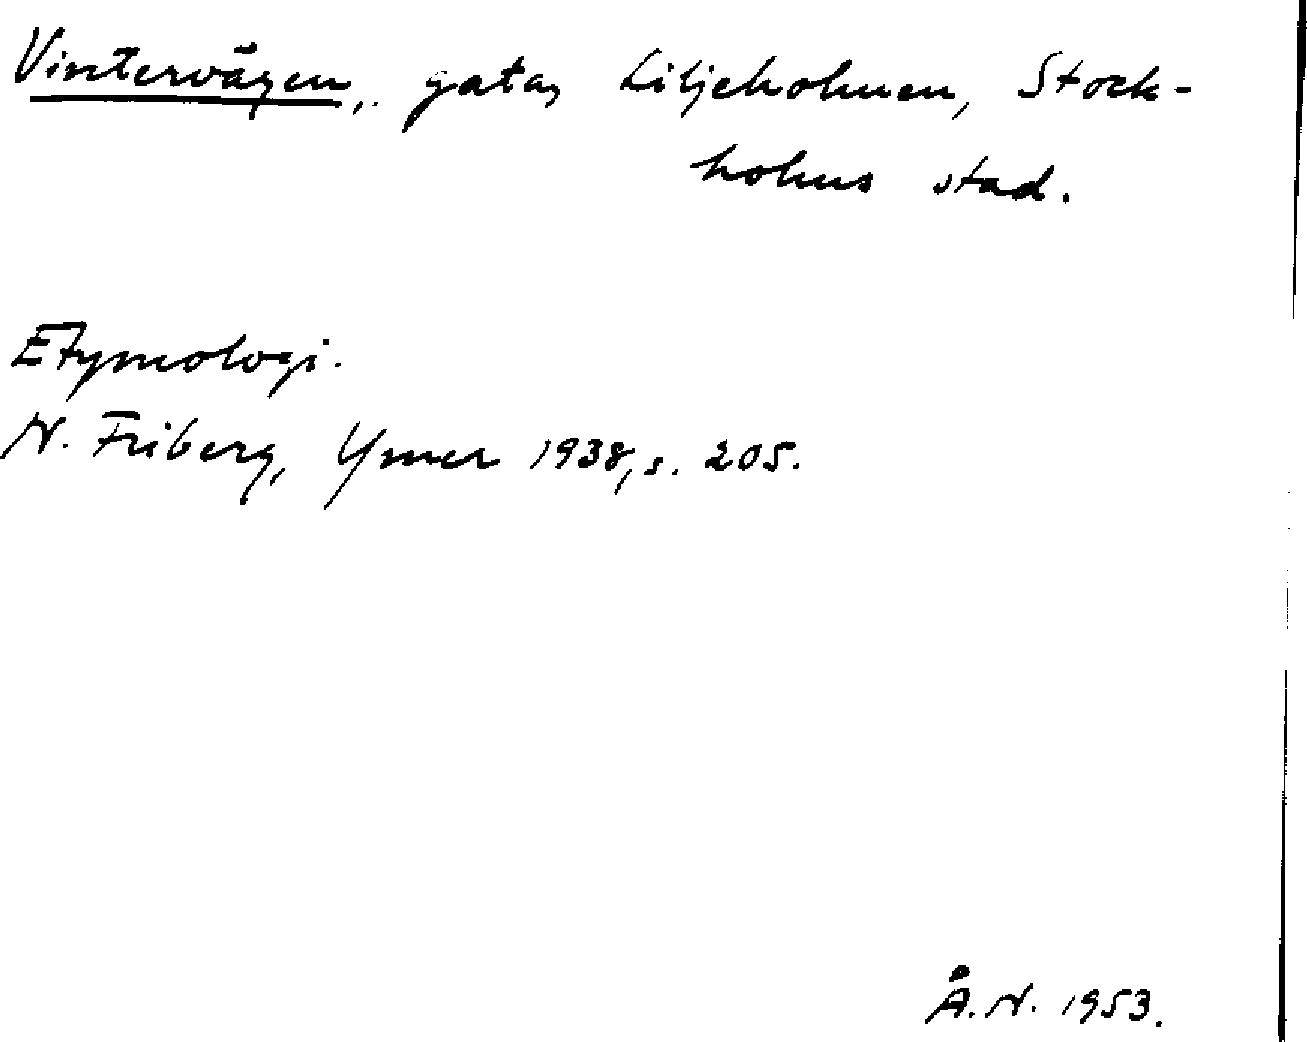 Vintervägen, gata, Liljeholmen, Stock-
holms stad.
Etymologi.
N. Friberg, Ymer 1938, s. 205.
Å.N. 1953.